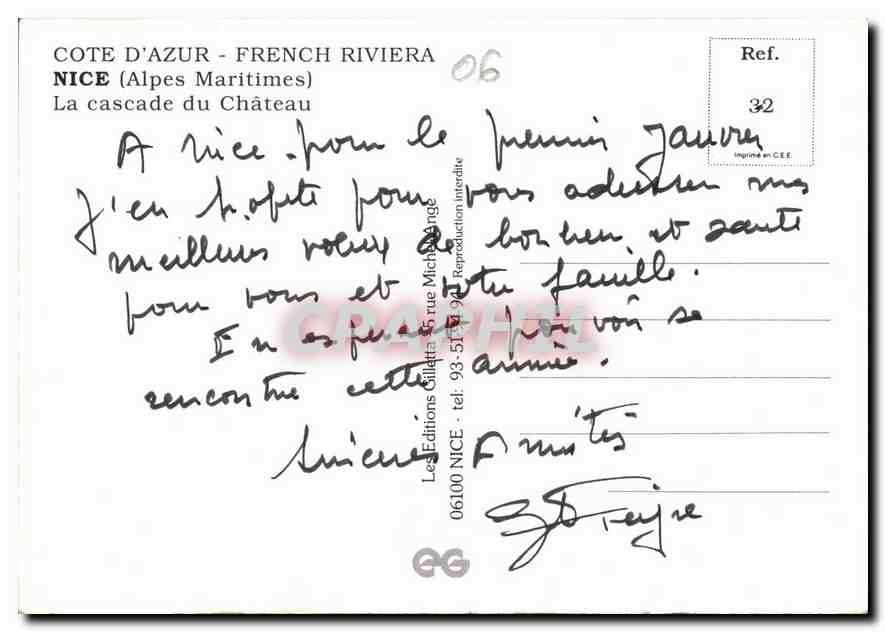 COTE D'AZUR - FRENCH RIVIERA
NICE (Alpes Maritimes)
La cascade du Château
06
Ref.
32
Imprimé en C.E.E.
A Nice. pour le premier Janvier
J'en profite pour vous adresser mes
meilleurs voeux de bonheur et santé
pour vous et votre famille.
En espérant pouvoir se
rencontrer cette année.
Sincères Amitiés
Les Editions Gilletta 25 rue Michel-Ange
06100 NICE - tel: 93-51 Reproduction interdite
CPAPHIL
EG